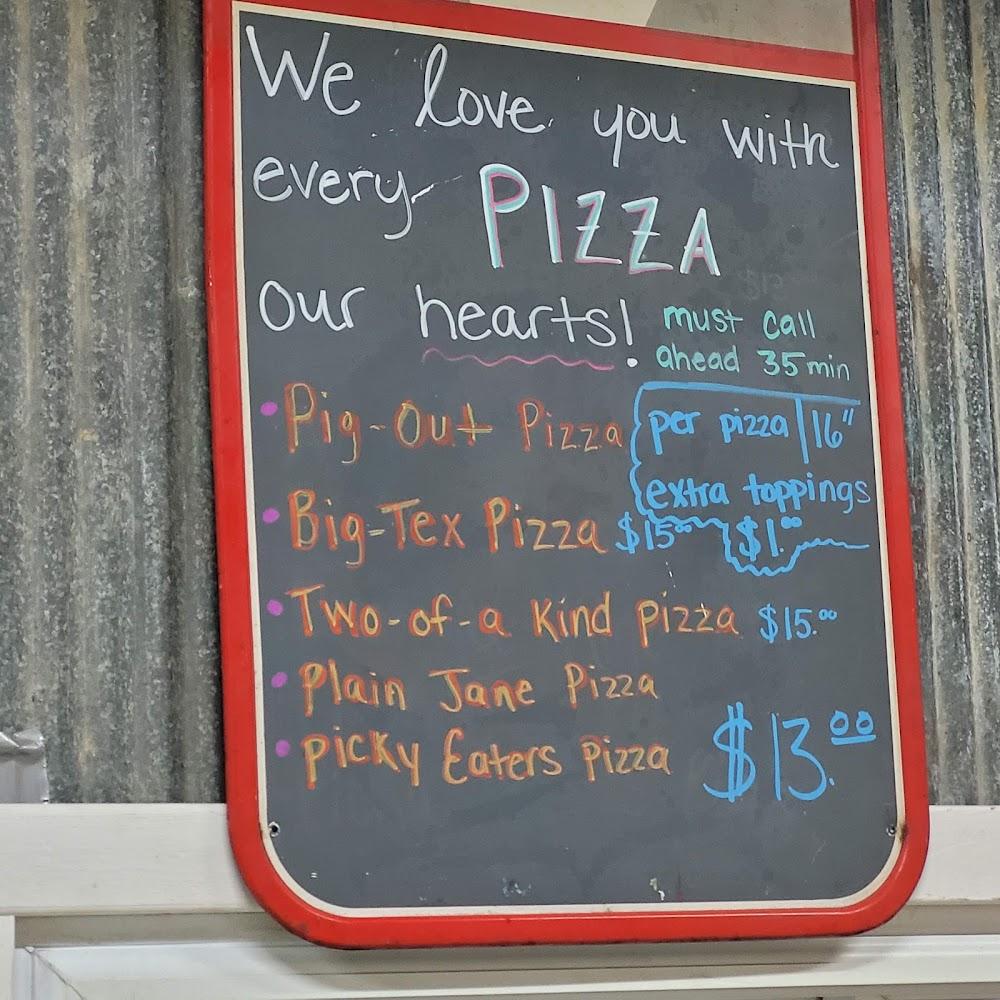 We love you with
every PIZZA
our hearts!
must call
ahead 35 min
• Pig-Out Pizza
per pizza | 16"
extra toppings
$1.00
• Big-Tex Pizza $15.00
• Two-of-a Kind Pizza $15.00
• Plain Jane Pizza
• Picky Eaters Pizza $13.00